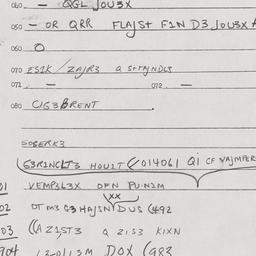 060. — QGL JOU3X
050 — OR QRR FLAJST F1N D3 JOU3X
060 O
070 ES1K / ZAJR3 Q S+TAJNDLS
072. — 072. —
080 CIG3BRENT .
EOSERK3
G3R1NCLT3 HOU2T (014061 Q1 CF VAJMPER
01 VEMPSL3X OFN PU.N2M
XX
02 OT M3 G3 HAJSN DUS (492
03 ((AZ1,ST3 Q Z1S3 K1XN
904 12-0113M DOX (983